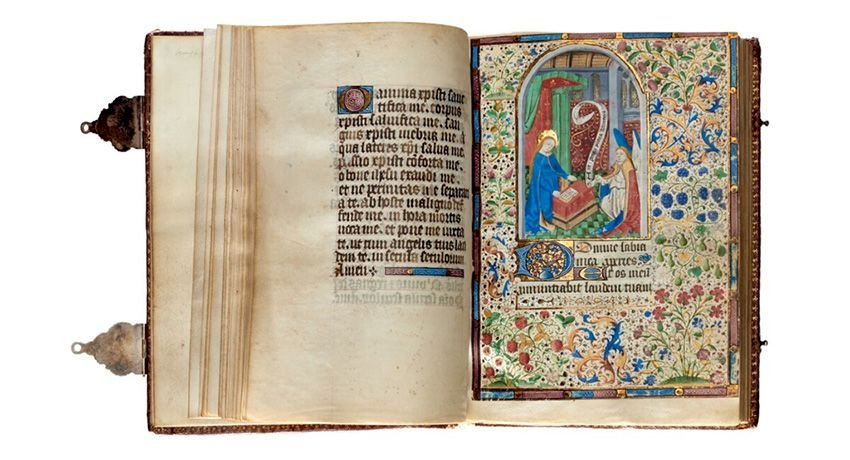 O anima xpisti sanc
tifica me. corpus
xpisti salvifica me. san
guis xpisti inebria me. A
qua lateris xpi salva me.
Passio xpisti coforta me.
o bone ihesu exaudi me.
et ne permittas me separari
a te. ab hoste maligno def
fende me. in hora mortis
voca me. et pone me iuxta
te. ut cum angelis tuis lau
dem te. in secula seculorum
Amen
Domine labia
mea aperies.
Et os meu
annuntiabit laudem tuam